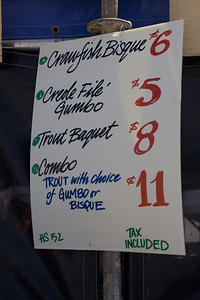 Crawfish Bisque $6
Creole Filé $5
Gumbo
Trout Baquet $8
Combo $11
TROUT with choice
of GUMBO or
BISQUE
HS 52
TAX
INCLUDED